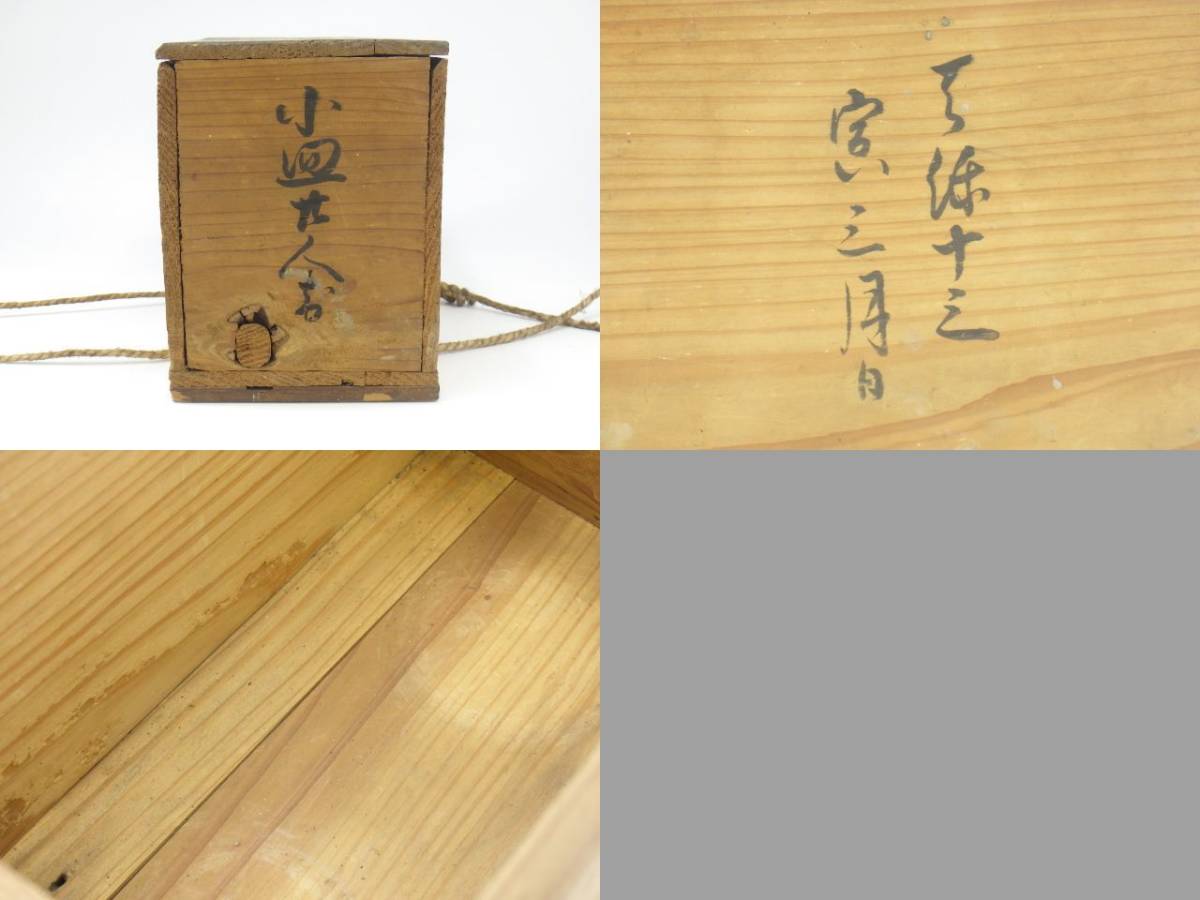 小皿廿人前
天保十三
寅三月日